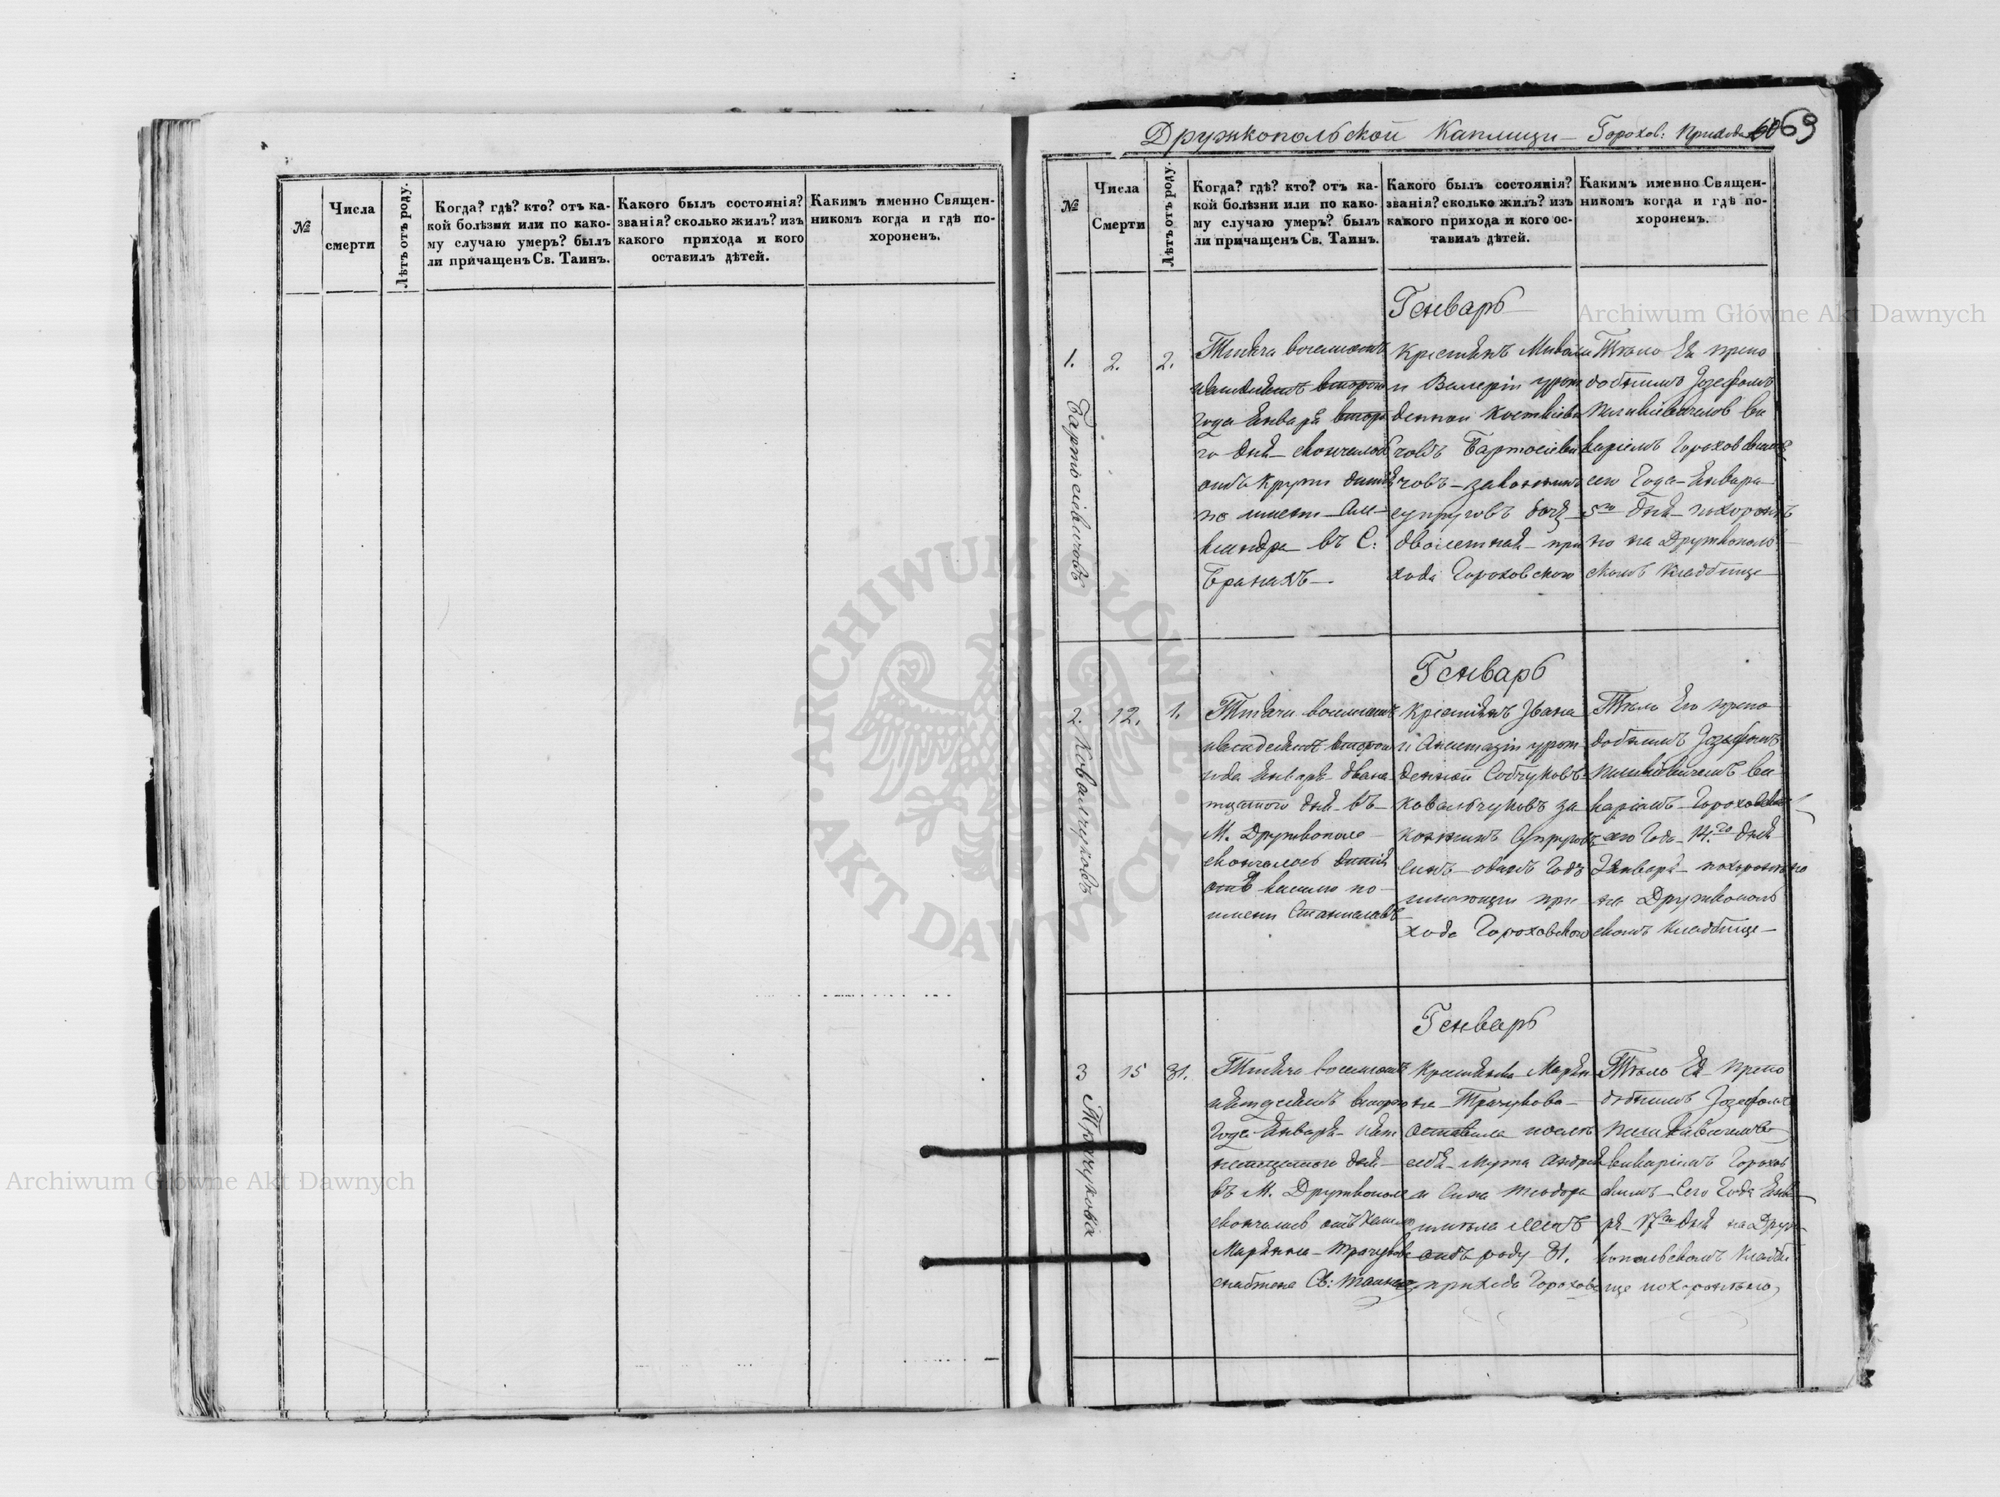 Дружкопольской Каплици – Горохов: Прихода 69
№
Числа
смерти
Лѣтъ отъ роду.
Когда? гдѣ? кто? отъ ка-
кой болѣзни или по како-
му случаю умеръ? былъ
ли причащенъ Св. Таинъ.
Какого былъ состоянія?
званія? сколько жилъ? изъ
какого прихода и кого
оставилъ дѣтей.
Какимъ именно Священ-
никомъ когда и гдѣ по-
хороненъ.
№
Числа
Смерти
Лѣтъ отъ роду.
Когда? гдѣ? кто? отъ ка-
кой болѣзни или по како-
му случаю умеръ? былъ
ли причащенъ Св. Таинъ.
Какого былъ состоянія?
званія? сколько жилъ? изъ
какого прихода и кого ос-
тавилъ дѣтей.
Какимъ именно Священ-
никомъ когда и гдѣ по-
хороненъ.
Генварь
1.
Бартосіевичовъ
2.
2.
Тысяча восемсотъ
второго
года Января
го дня скончалось
отъ крупи дитя
по имени Алек-
сандра въ С:
Бранахъ
и Валеріи урож
денной
човъ Бартосіеви
човъ законныхъ
супруговъ дочь
дволетняя при
хода Гороховского
Тѣло Ея препо
добнымъ Іозефомъ
ви
каріемъ Гороховскимъ
сего Года Января
5го дня похоронѣ
но на Дружкополь
скомъ кладбище
Генварь
2.
Ковальчуковъ
12.
1.
Тысяча восемсотъ
второго
года Января двана
тцатого дня въ
М. Дружкополе
скончалось дитя
отъ кашлю по
имени Станиславъ
Крестянъ Івана
и Анастазіи урож
денной Собчуковъ
Ковальчуковъ за
конныхъ Супруговъ
синъ одинъ Годъ
имеющи при
хода Гороховского
Тѣло Его препо
добнымъ Іозефомъ
ви
каріемъ Гороховскимъ
сего Года 14.го дня
Января похоронѣно
на Дружкополь
скомъ Кладбище
Генварь
3
Трачукова
15
31.
Тысяча восемсотъ
второго
Года Января пят
натцатого дня
въ М. Дружкополе
скончалась отъ кашлю
Маріянна Трачукова
снабжена Св: Таинствы
Крестянка Маріян
на Трачукова
оставила послѣ
себя мужа Андрея
и Сина Теодора
имѣла летъ
отъ роду 31.
прихода Горохова
Тѣло Ея Препо
добнымъ Іозефомъ
викаріемъ Горохов
скимъ Сего Года Янва
ря 17го дня на Друж
копольскомъ Кладби
ще похоронѣно
Archiwum Główne Akt Dawnych
Archiwum Główne Akt Dawnych
ARCHIWUM GŁÓWNE · AKT DAWNYCH ·